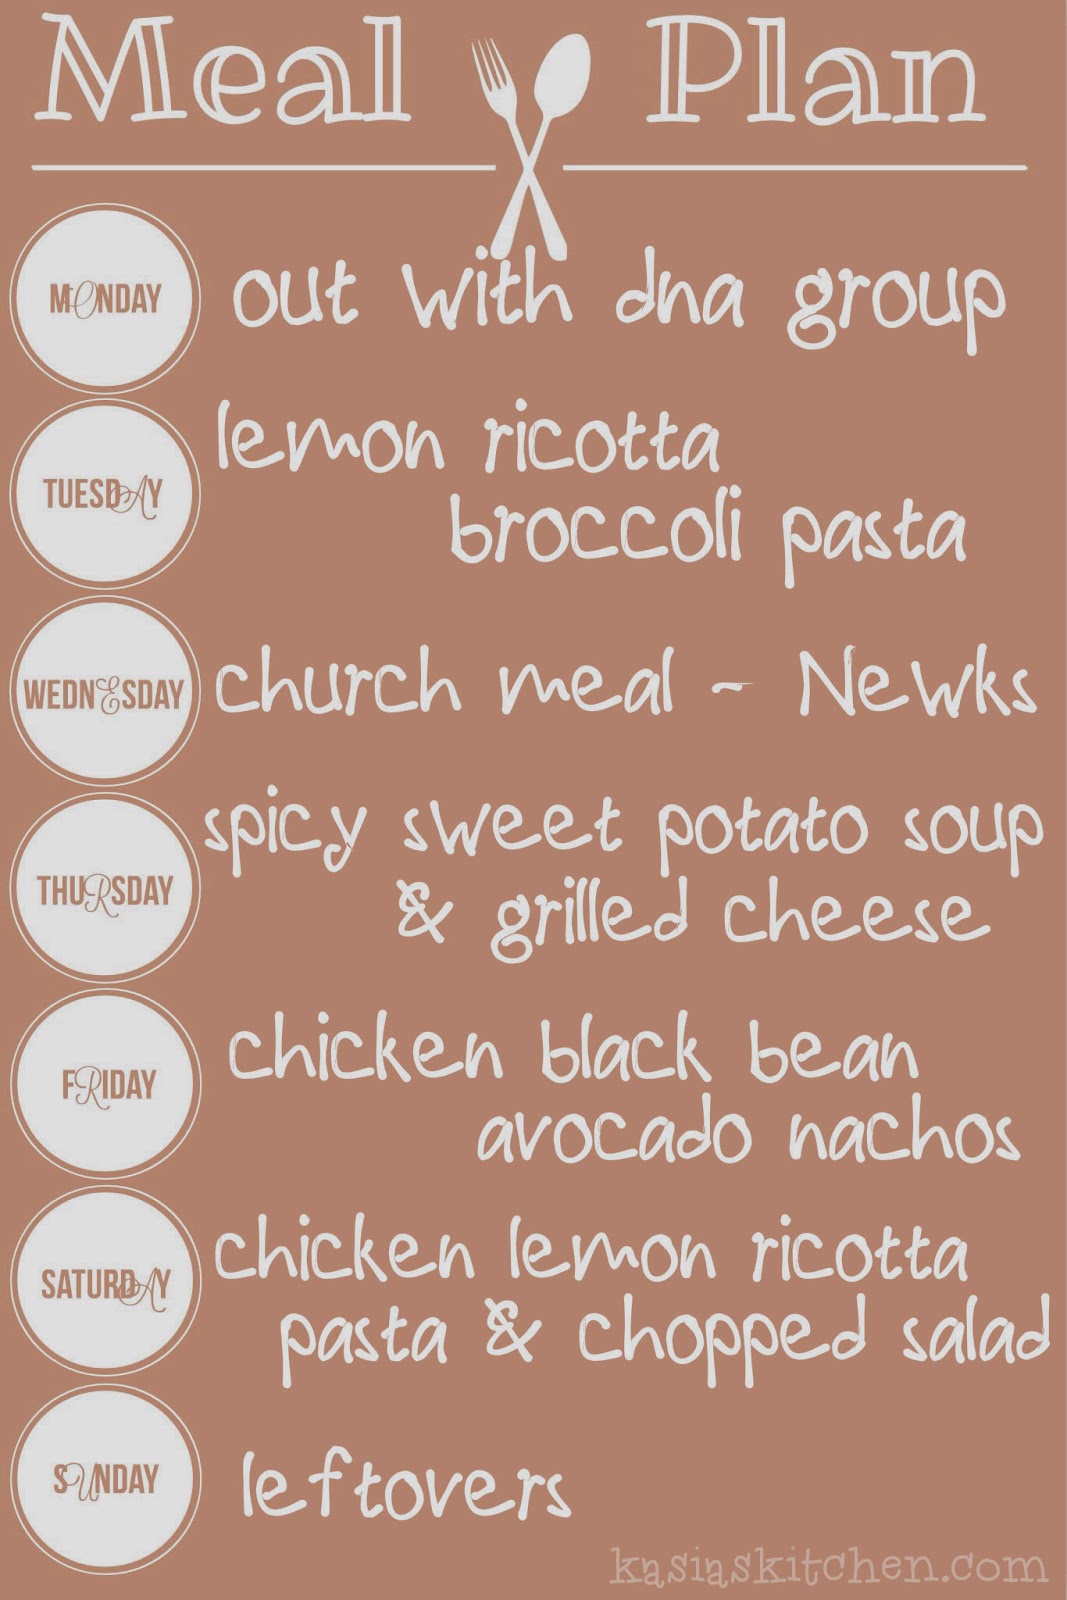 Meal Plan
MONDAY
out with dna group
TUESDAY
lemon ricotta
broccoli pasta
WEDNESDAY
church meal - Newks
THURSDAY
spicy sweet potato soup
& grilled cheese
FRIDAY
chicken black bean
avocado nachos
SATURDAY
chicken lemon ricotta
pasta & chopped salad
SUNDAY
leftovers
kasiaskitchen.com